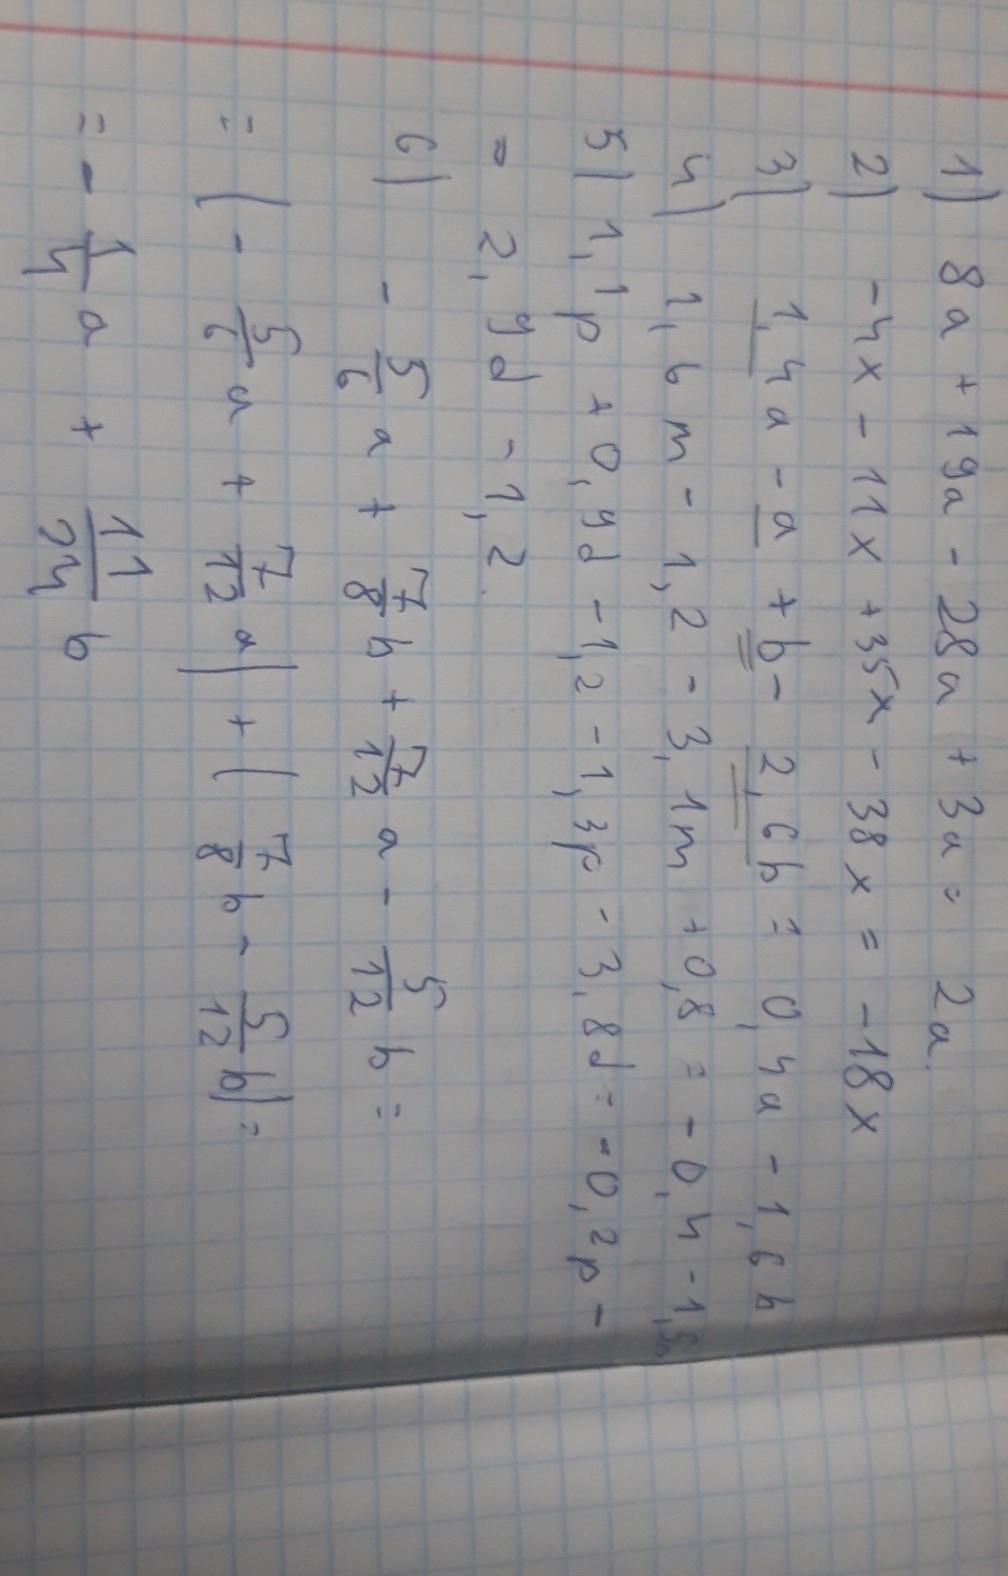 1) 8a + 19a - 28a + 3a = 2a.
2) -4x - 11x + 35x - 38x = -18x
3) 1,4a - a + b - 2,6b = 0,4a - 1,6b
4) 1,6m - 1,2 - 3,1m + 0,8 = -0,4 - 1,5m
5) 1,1p + 0,9d - 1,2 - 1,3p - 3,8d = -0,2p -
= 2,9d - 1,2.
6) - 5/6 a + 7/8 b + 7/12 a - 5/12 b =
= (- 5/6 a + 7/12 a) + (7/8 b - 5/12 b) =
= - 1/4 a + 11/24 b